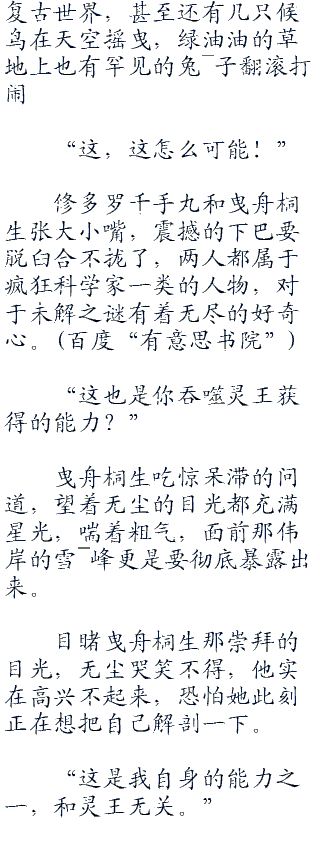 复古世界，甚至还有几只候
鸟在天空摇曳，绿油油的草
地上也有罕见的兔¯子翻滚打
闹
“这，这怎么可能！”
修多罗千手丸和曳舟桐
生张大小嘴，震撼的下巴要
脱臼合不拢了，两人都属于
疯狂科学家一类的人物，对
于未解之谜有着无尽的好奇
心。(百度“有意思书院”)
“这也是你吞噬灵王获
得的能力？”
曳舟桐生吃惊呆滞的问
道，望着无尘的目光都充满
星光，喘着粗气，面前那伟
岸的雪¯峰更是要彻底暴露出
来。
目睹曳舟桐生那崇拜的
目光，无尘哭笑不得，他实
在高兴不起来，恐怕她此刻
正在想把自己解剖一下。
“这是我自身的能力之
一，和灵王无关。”